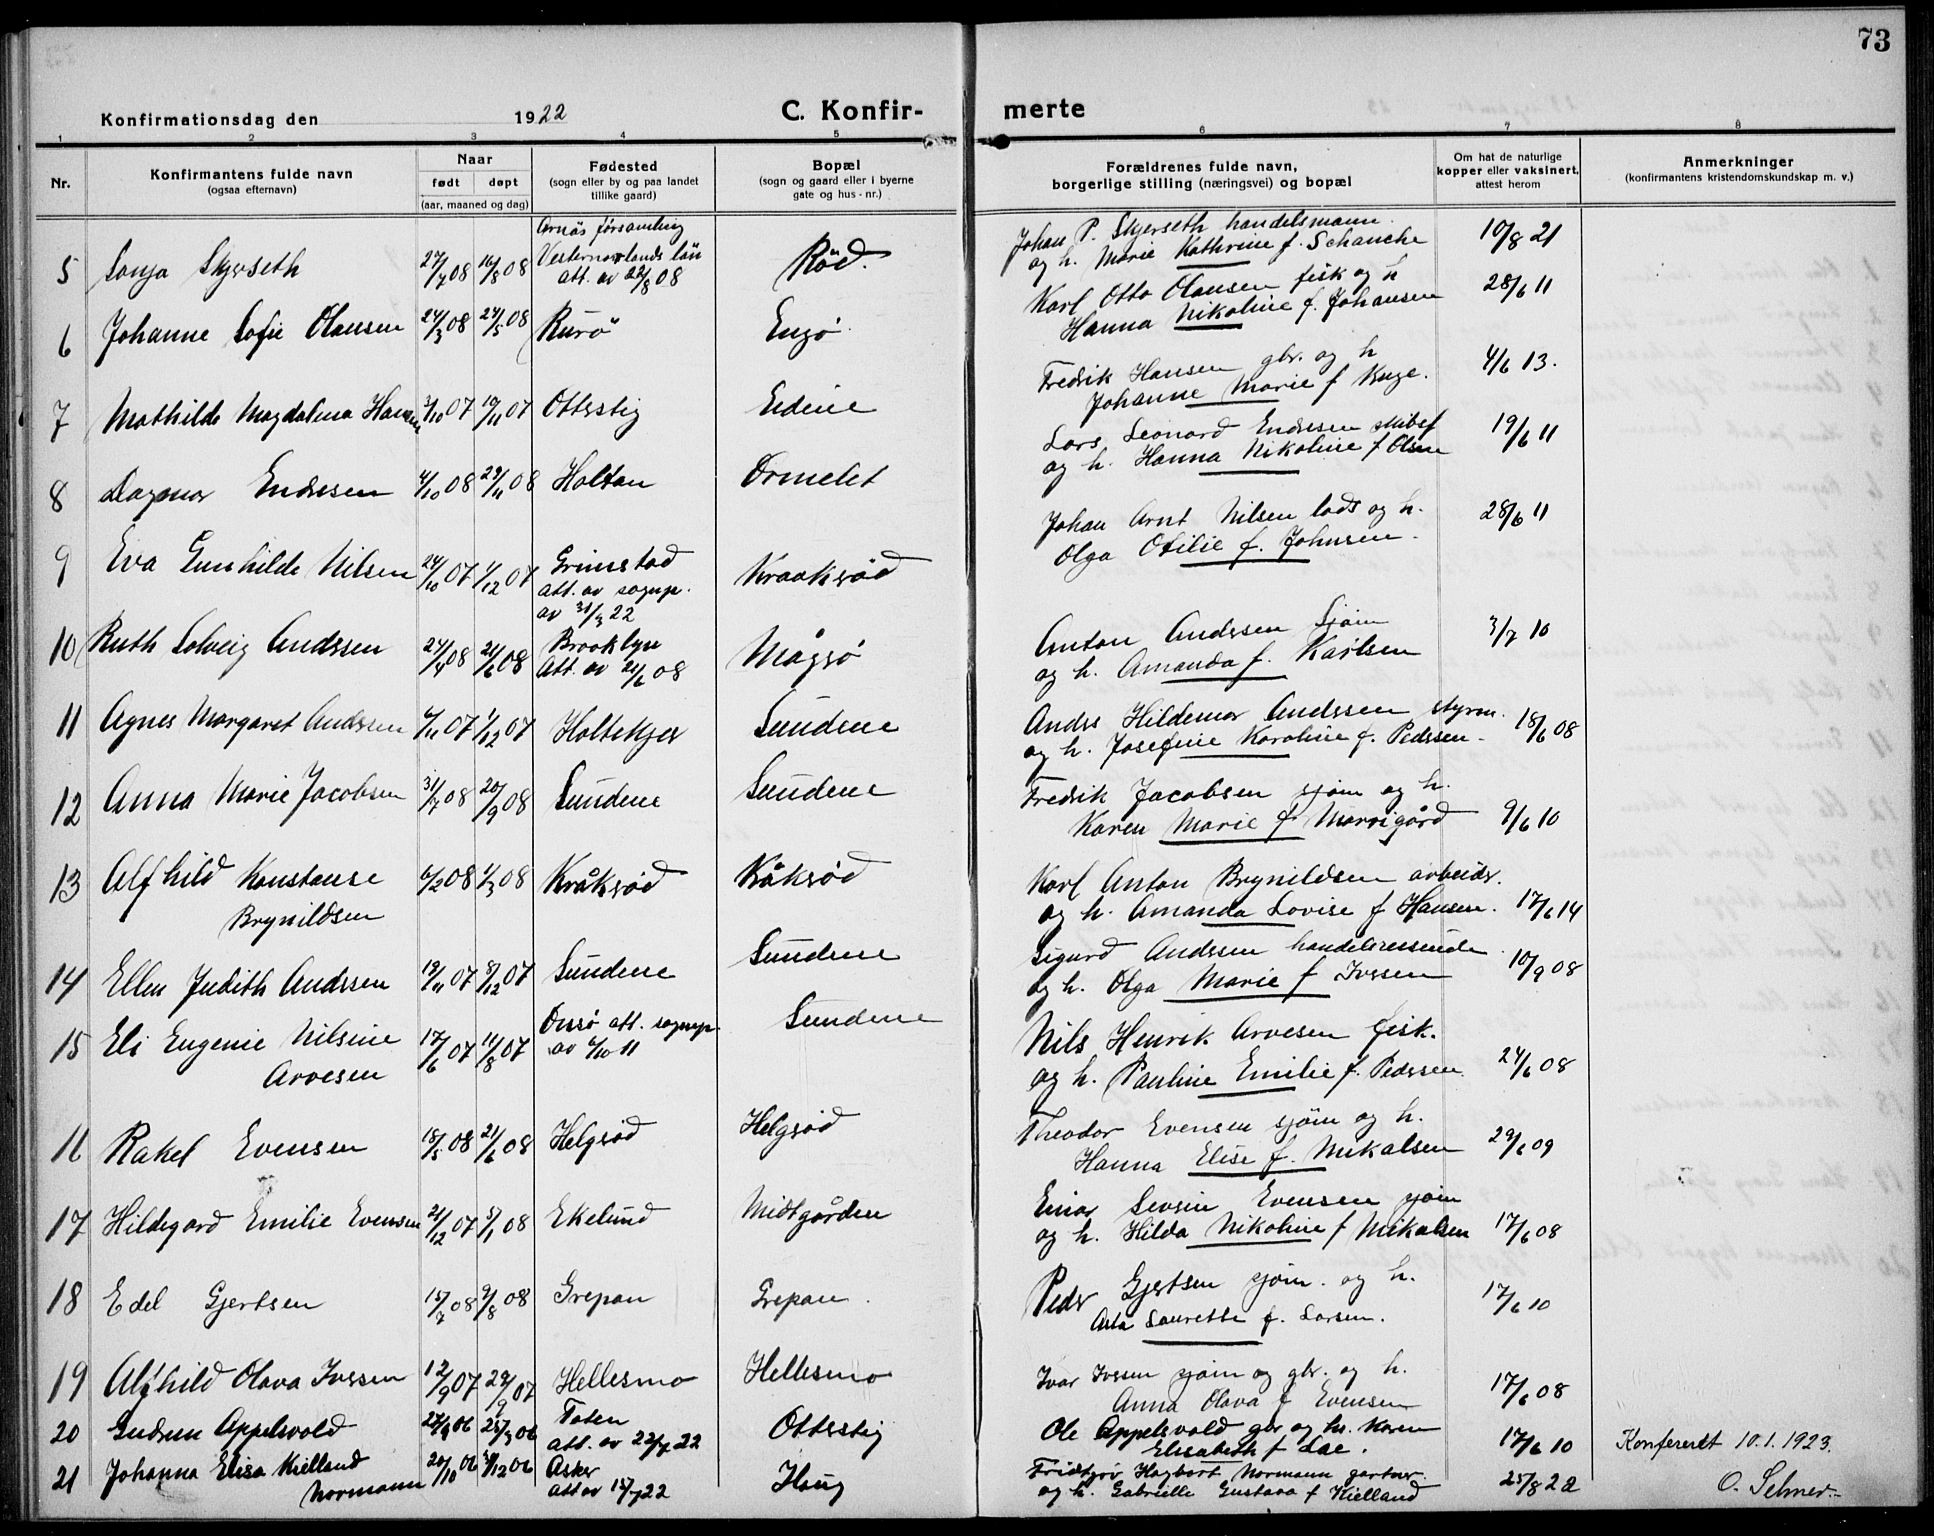 73
Konfirmationsdag den 1922 C. Konfir- merte
1 2 3 4 5 6 7 8
Nr. Konfirmantens fulde navn (ogsaa efternavn) Naar født døpt (aar, maaned og dag) Fødested (sogn eller by og paa landet tillike gaard) Bopæl (sogn og gaard eller i byerne gate og hus-nr.) Forældrenes fulde navn, borgerlige stilling (næringsvei) og bopæl Om hat de naturlige kopper eller vaksinert, attest herom Anmerkninger (konfirmantens kristendomskundskap m. v.)
Arnäs församling Johan P. Skjerseth handelsmann.
5 Sonja Skjerseth 27/7 08 16/8 08 Vesternorrlands län Rød. og h. Marie Kathrine f. Schanche 10/8 21
att. av 22/8 08
6 Johanne Sofie Olausen 24/3 08 24/5 08 Kurø Engø Karl Otto Olausen fisk og h 28/6 11
Hanna Nikoline f. Johansen
7 Mathilde Magdalena Hansen 3/10 07 10/11 07 Oterstig Eidene Fredrik Hansen gbr. og h 4/6 13.
Johanne Marie f Kuge.
8 Dagmar Endresen 4/10 08 29/11 08 Holtan Ormelet Lars Leonard Endresen skibsf 19/6 11
og h. Hanna Nikoline f Olsen
9 Eva Gunhilde Nilsen 24/10 07 1/12 07 Grimstad Kraakerød Johan Arnt Nilsen lods og h. 28/6 11
att. av sognep. Olga Otilie f. Johnsen.
av 31/3 22
10 Ruth Solveig Andersen 24/4 08 21/6 08 Brooklyn Mågerø Anton Andersen Sjøm 3/7 10
Att. av 21/6 08 og h. Amanda f. Karlsen
11 Agnes Margaret Andersen 6/11 07 1/12 07 Holtekjer Sundene Anders Hildemar Andersen styrm. 18/6 08
og h. Josefine Karoline f. Pedersen.
12 Anna Marie Jacobsen 31/7 08 20/9 08 Sundene Sundene Fredrik Jacobsen sjøm og h. 9/6 10
Karen Marie f. Marrigård
13 Alfhild Konstanse 6/2 08 1/3 08 Kråkerød Kråkerød Karl Anton Brynildsen arbeider.
Brynildsen og h. Amanda Lovise f Hansen. 17/6 14
14 Ellen Judith Andersen 19/11 07 8/12 07 Sundene Sundene Sigurd Andersen handelsreisende 10/9 08
og h. Olga Marie f Iversen
15 Eli Eugenie Nilsine 17/6 07 11/8 07 Onsø att. sognep. Sundene Nils Henrik Arvesen fisk.
Arvesen av 6/10 11 og h. Pauline Emilie f. Pedersen 24/6 08
16 Rakel Evensen 18/5 08 21/6 08 Helgerød Helgerød Theodor Evensen sjøm og h. 29/6 09
Hanna Elise f. Mikalsen
17 Hildegard Emilie Evensen 21/12 07 5/1 08 Ekelund Midtgården Einar Severin Evensen sjøm
og h. Hilda Nikoline f Mikalsen 17/6 08
18 Edel Gjertsen 15/7 08 9/8 08 Grepan Grepan. Peder Gjertsen sjøm. og h. 17/6 10
Asta Laurette f. Larsen.
19 Alfhild Olava Iversen 12/9 07 29/9 07 Hellesmo Hellesmo Ivar Iversen sjøm og gbr. og h. 17/6 08
Anna Olava f Evensen
20 Gudrun Appelsvold 27/1 06 25/3 06 Toten Oterstig Ole Appelsvold gbr og h. Karen 17/6 10 Konferert 10.1.1923.
att. av 22/7 22 Elisabeth f Lae.
21 Johanna Elisa Kielland 20/10 06 31/12 06 Asker Haug Fridtjov Hagbart Normann gartner. 25/8 22 O. Selmer.
Normann att av 15/7 22 og h. Gabrielle Gustava f Kielland